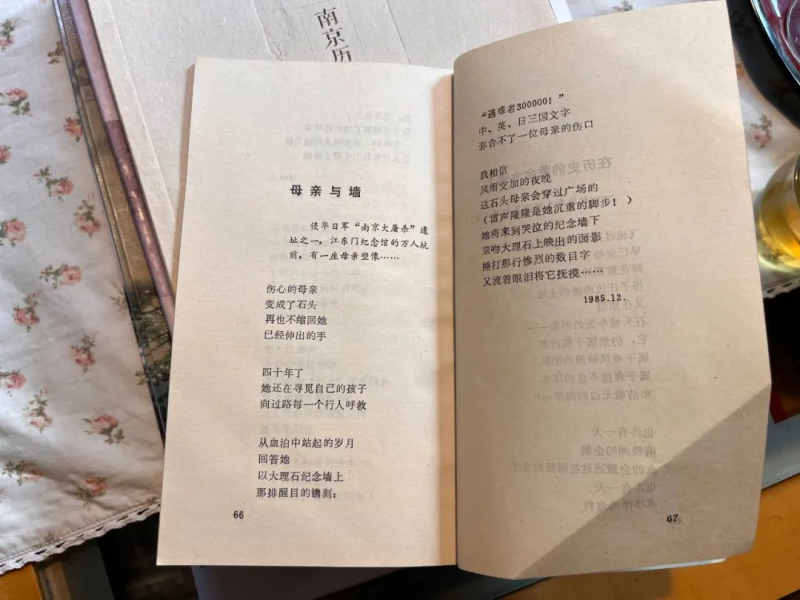 南京历
母亲与墙
侵华日军“南京大屠杀”遗
址之一，江东门纪念馆的万人坑
前，有一座母亲塑像……
伤心的母亲
变成了石头
再也不缩回她
已经伸出的手
四十年了
她还在寻见自己的孩子
向过路每一个行人呼救
从血泊中站起的岁月
回答她
以大理石纪念墙上
那排醒目的镌刻：
66
“遇难者300000！”
中、英、日三国文字
弥合不了一位母亲的伤口
我相信
风雨交加的夜晚
这石头母亲会穿过广场的
（雷声隆隆是她沉重的脚步！）
她将来到哭泣的纪念墙下
亲吻大理石上映出的面影
捶打那行惨烈的数目字
又流着眼泪将它抚摸……
1985.12.
67